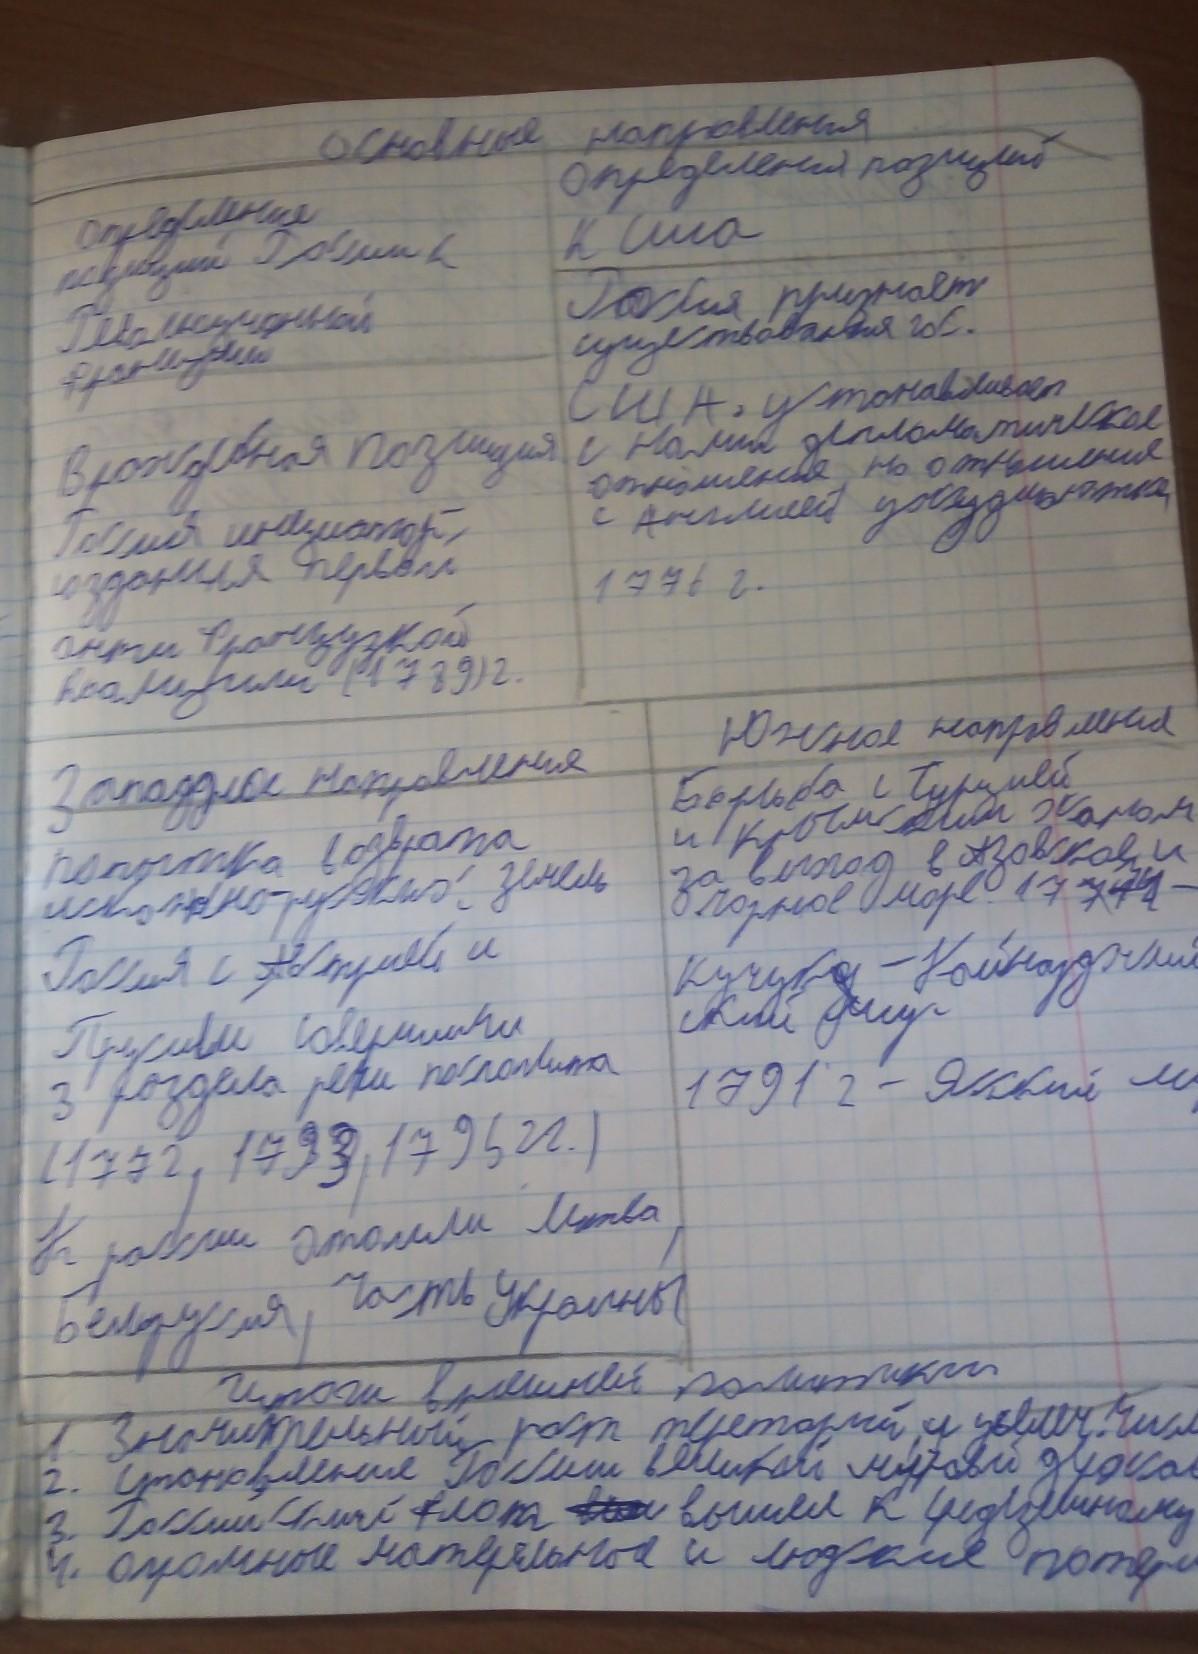 Основные направления
Определения
позиций России к
Революционной
Франции
Враждебная позиция
Россия инициатор
создания первой
анти Французкой
коалиции (1789)г.
Определения позиций
к Сша
Россия признает
существования гос.
США. устанавливает
с ними дипломатическое
отношения, но отношения
с Англией ухудшаются
1776 г.
Западное направления
попытка возврата
исконно-русских земель
Россия с Австрией и
Прусией совершили
3 раздела речи посполита
(1772, 1793, 1795 гг.)
К россии отошли Литва,
Белоруссия, Часть Украины
Южное направления
Борьба с Турцией
и крымским ханом
за выход в Азовское и
Чорное море. 1774 -
Кучук - Кайнаджий
ский мир
1791 г - Ясский ми
Итоги внешней политики
1. Значительный рост территорий и увелич. числ
2. Становления России великой мировой держа
3. Российский Флот вышел к средиземному
4. огромные матеряльные и людские потери